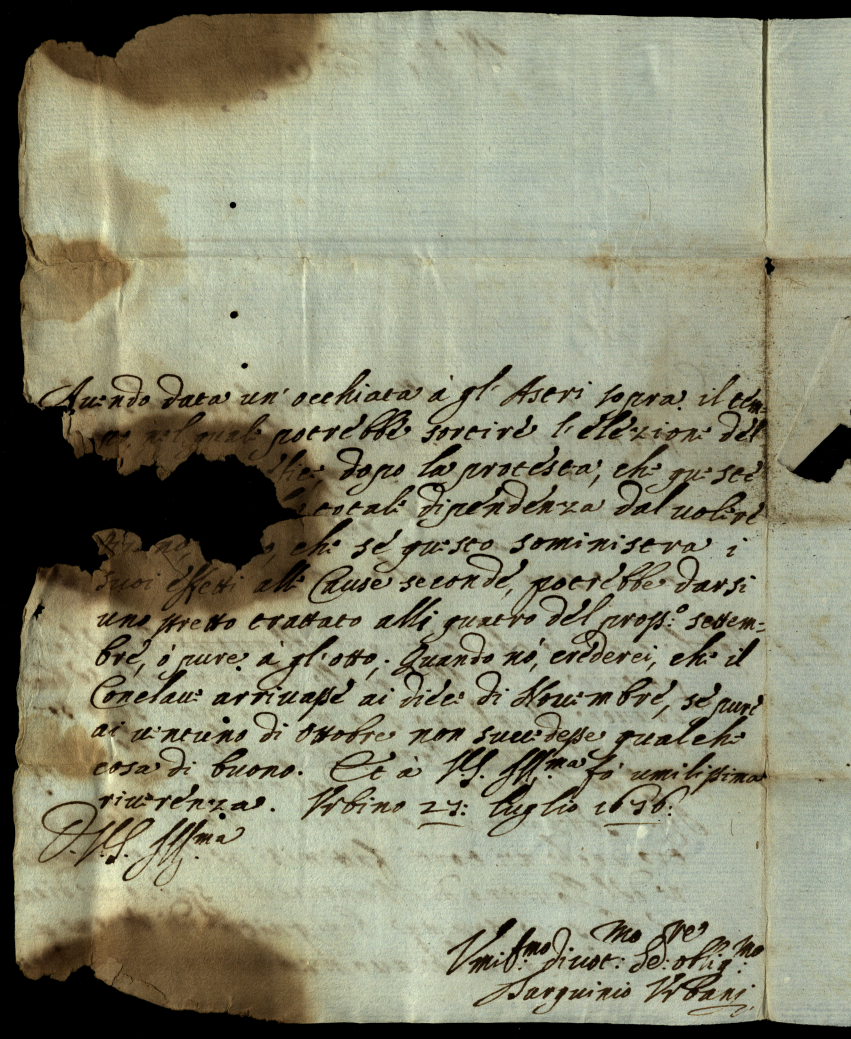 Auendo data un' occhiata à gl' Astri sopra il tem=
po nel quale potrebbe sortire l'elezione del
dopo la protesta, che queste
totale dipendenza dal uolere
che se questo soministra i
suoi effetti alle Cause seconde, potrebbe darsi
uno stretto trattato alli quatro del pross:o settem=
bre, ò pure à gl'otto,. Quando nò, crederei, che il
Conclaue arriuasse ai diece di Nouembre, se pure
ai uentuno di ottobre non succedesse qualche
cosa di buono. Et à VS. Ill:ma fò umilissima
riuerenza. Vrbino 27: luglio 1676:
D. VS. Ill:ma
Vmil:mo diuot:mo Se:re oblig:mo
Tarquinio Vrbani